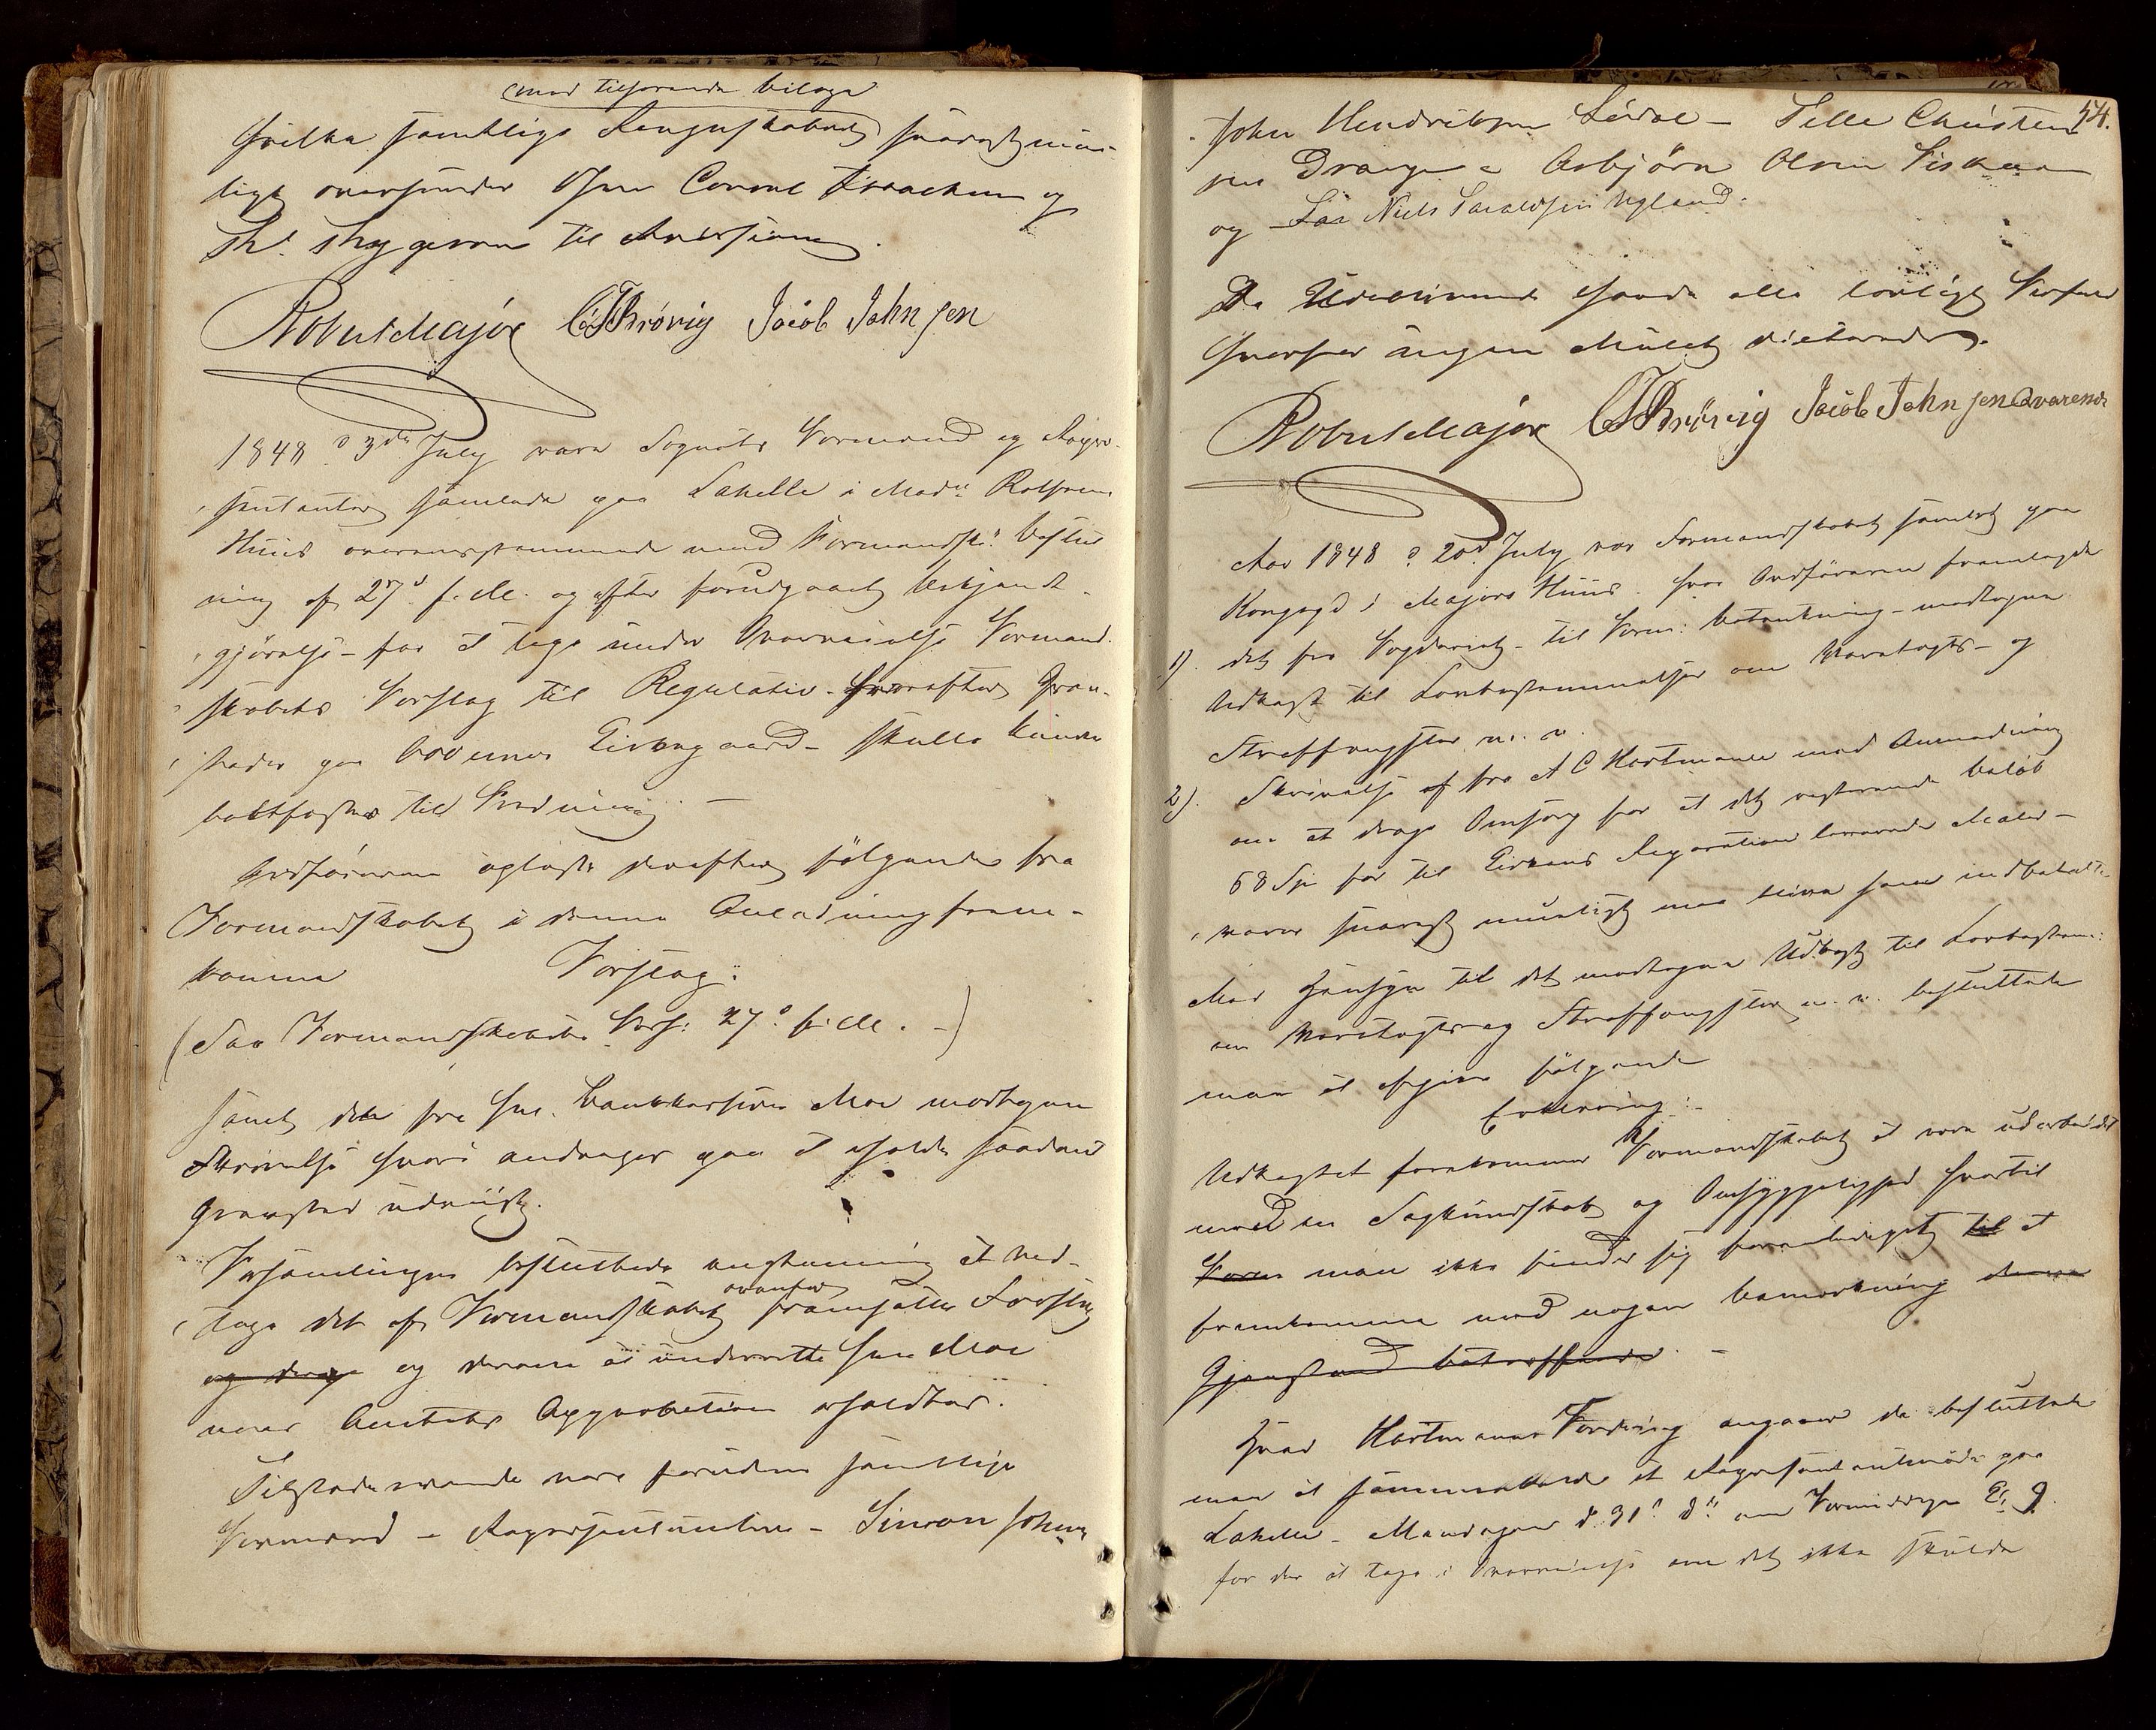 med tilhørende bilage
hvilke samtlige Regnskaber snarest mue-
ligt oversender Hrr Consul Isaachsen og
til Revision.
Robert Major CTBrøvig Jacob Johnsen
1848 d 3die July vare Sognets Formænd og Repræ-
sentanter samlede paa Lahelle i Madm Rolfsens
Huus overensstemmende med Formandsk: beslut
ning af 27d f. M. og efter forudgaaet bekjendt-
gjørelse – for at tage under Overveielse Formand-
skabets Forslag til Regulativ hvorefter Grav-
steder paa Oddernes Kirkegaard – skulle kunde
bortfæstes til Fredning –
Ordføreren oplæste derefter følgende fra
Formandskabet i denne Anledning frem-
komne Forslag:
(See Formandskabets Forh: 27d f. M. –)
samt det fra Hrr. Bankkasserer Moe modtagne
Skrivelse hvori andrages paa at erholde saadant
Gravsted udviist.
Forsamlingen besluttede eenstemmig at ved-
tage det af Formandskabet ovenfor fremsatte Forslag
og derom at underrette Hrr Moe
naar Amtets Approbation erholdtes.
Tilstedeværende vare foruden samtlige
Formænd – Repræsentanterne – Simon Johns
54.
John Hendriksen Lørdal – Pelle Christen-
sen Drange – Asbjørn Olsen Fiskaa
og Lar Niels Taraldsen Ugland.
De Udeblivende havde alle lovligt Forfald
hvorfor ingen Mulct dicteredes.
Robert Major CTBrøvig Jacob Johnsen Qvarenes
Aar 1848 d. 20d July var Formandskabet samlet paa
Kongsgd i Majors Huus. hvor Ordføreren fremlagde
1). det fra Fogderiet – til Form: betænkning – modtagne
Udkast til Lovbestemmelser om Varetægts- og
Straffængsler m. v.
2). Skrivelse af fra A C Hartmann med Anmodning
om at drage Omsorg for at det resterende beløb
68 Spd for til Kirkens Reparation leverede Mate-
rialer snarest mueligt maa blive ham indbetalt.
Med Hensyn til det modtagne Udkast til Lovbestem:
om Varetægts og Straffængsler m. v. besluttede
man at afgive følgende
Erklæring:–
Udkastet forekommer Formandskabet at være udarbeidet
med en Sagkundskab og Omhyggelighed hvortil
Form man ikke finder sig foranlediget til at
fremkomme med nogen bemærkning denne
Gjenstand betræffende. –
Hvad Hartmanns Fordring angaaer da besluttede
man at sammenkalde et Repræsentantmøde paa
Lahelle – Mandagen d. 31d ds om Formiddagen Kl 9.
for der at tage i Overveielse om det ikke skulde